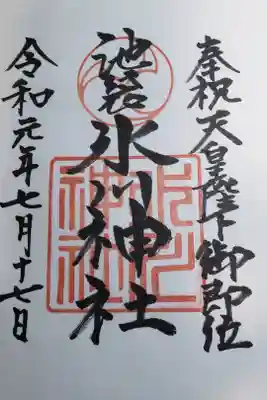 奉祝天皇陛下御即位
池袋氷川神社
氷川神社
令和元年七月十七日